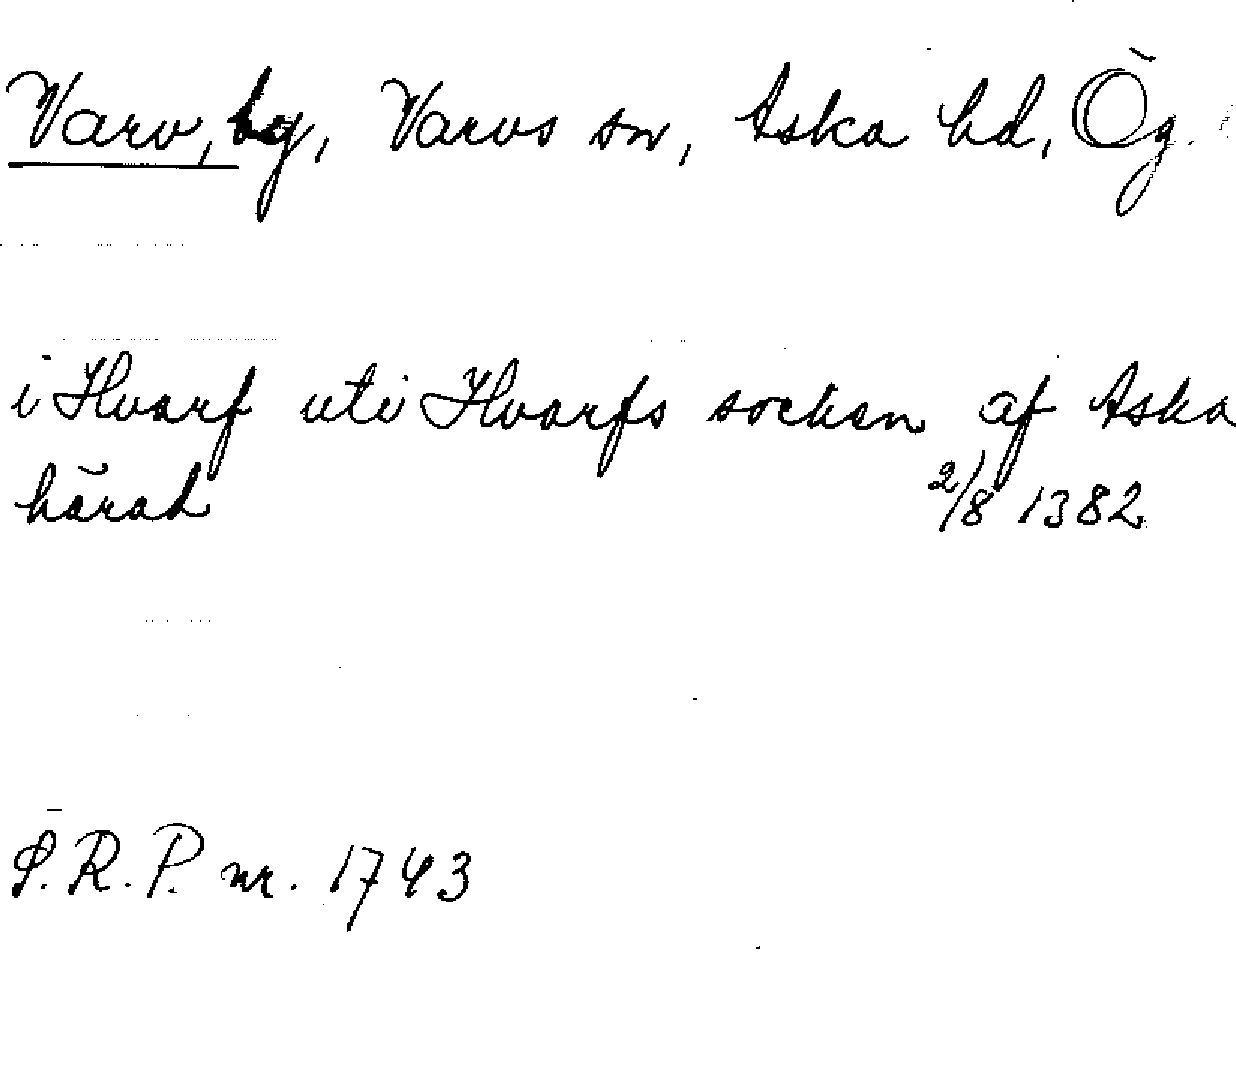 Varv, by, Varvs sn, Aska hd, Ög.
i Hvarf uti Hvarfs socken af Aska
härad 2/8 1382
S.R.P. nr. 1743